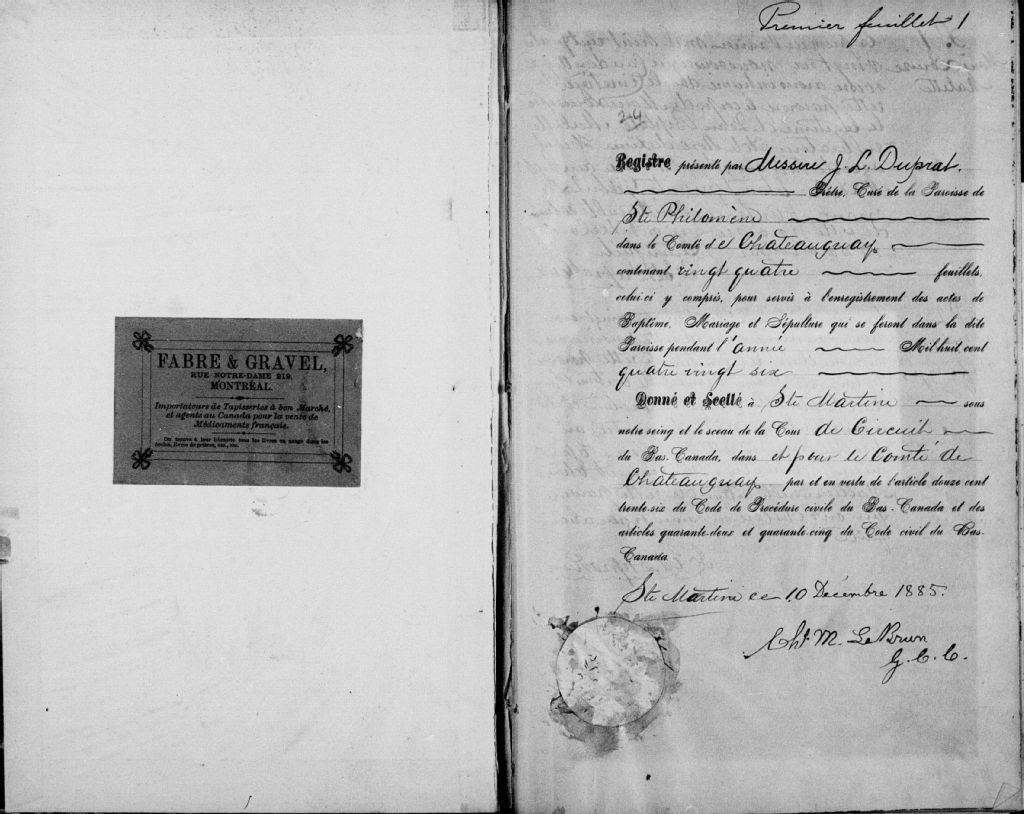 FABRE & GRAVEL,
RUE NOTRE-DAME 219.
MONTRÉAL.
Importateurs de Tapisseries à bon Marché,
et agents au Canada pour la vente de
Médicaments français.
On trouve à leur librairie tous les livres en usage dans les
écoles, livres de prières, etc., etc.
Premier feuillet 1
24
Registre présenté par Messire J. L. Duprat.
Prêtre, Curé de la Paroisse de
Ste Philomène
dans le Comté de Chateauguay
contenant vingt quatre feuillets,
celui-ci y compris, pour servir à l'enregistrement des actes de
Baptême, Mariage et Sépulture qui se feront dans la dite
Paroisse pendant l'année Mil huit cent
quatre vingt six
Donné et Scellé à Ste Martine sous
notre seing et le sceau de la Cour de Circuit
du Bas-Canada, dans et pour le Comté de
Chateauguay par et en vertu de l'article douze cent
trente-six du Code de Procédure civile du Bas-Canada et des
articles quarante-deux et quarante-cinq du Code civil du Bas-
Canada
Ste Martine ce 10 Décembre 1885.
Chs. M. LeBrun
G. C. C.